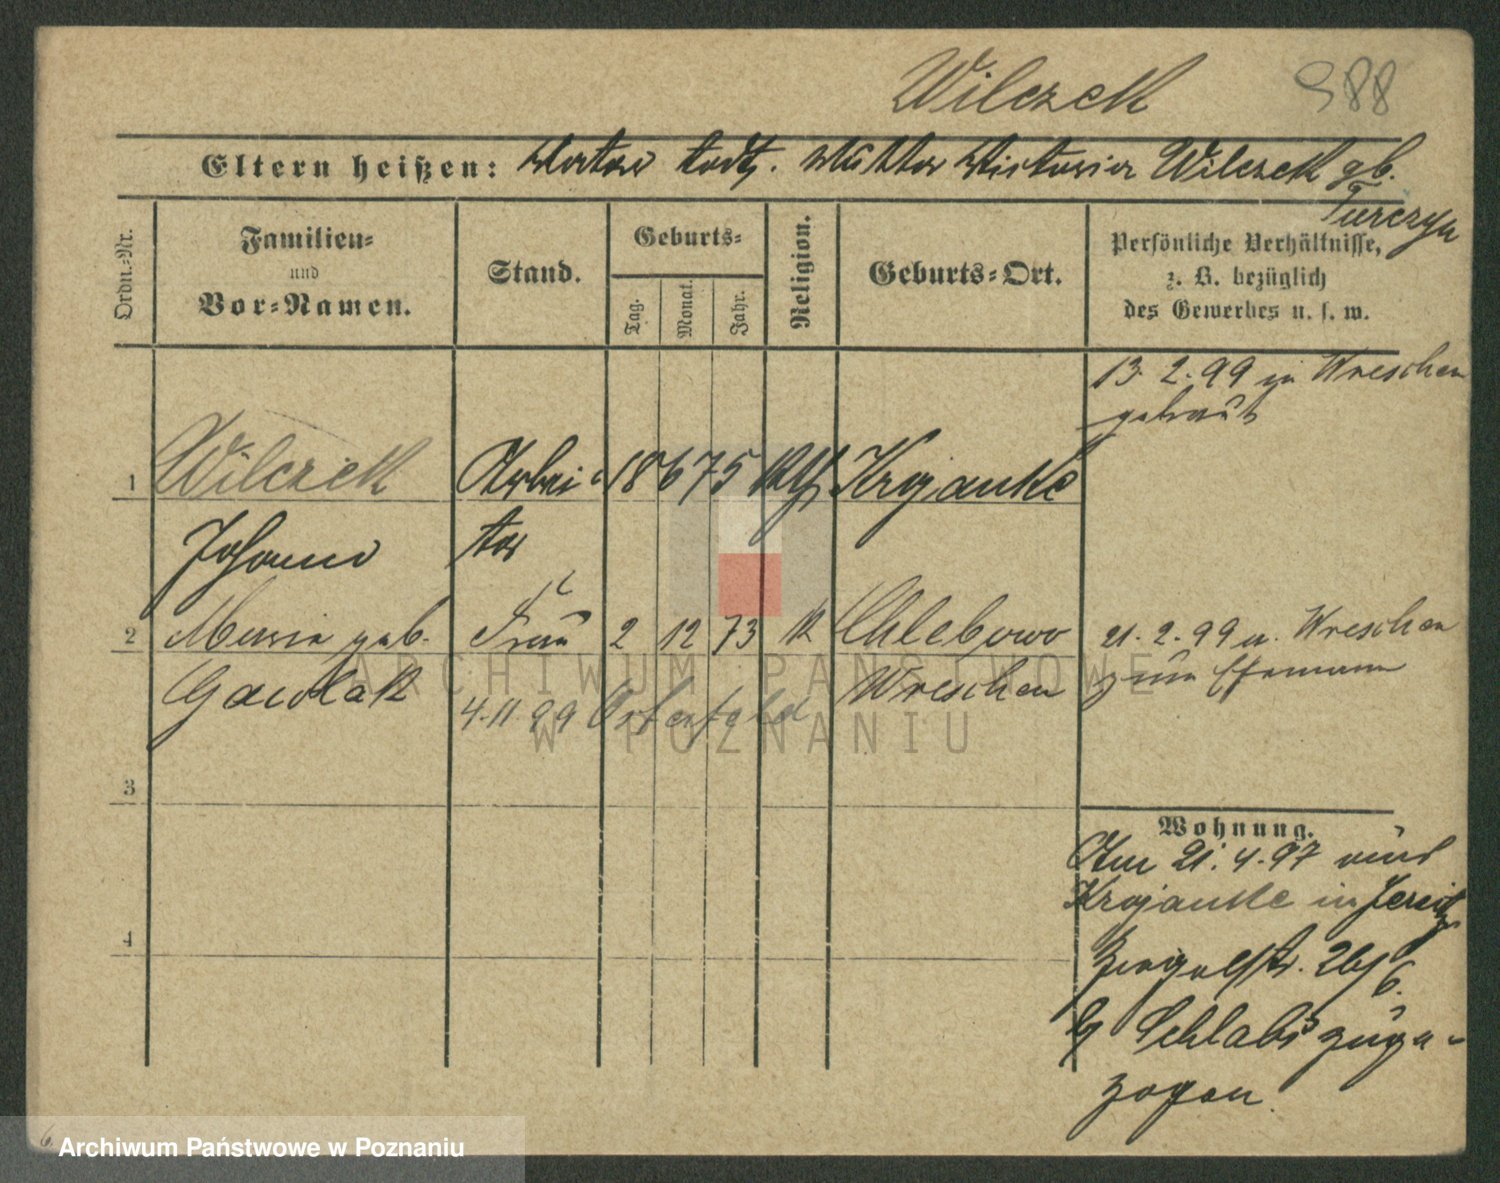 Wilczek 988
Eltern heißen: Vater todt. Mutter Victoria Wilczek gb.
Turczyn
Ordn.-Nr.
Familien-
und
Vor-Namen.
Stand.
Geburts-
Tag.
Monat.
Jahr.
Religion.
Geburts-Ort.
Persönliche Verhältnisse,
z. B. bezüglich
des Gewerbes u. s. w.
13. 2. 99 in Wreschen
getraut
1 Wilczek Arbei- 18 6 75 Krojanke
Johann ter
2 Maria geb. Frau 2 12 73 K Chlebowo
Gawlak Wreschen
4.11 99 Osterfeld
21. 2. 99 v. Wreschen
zum Ehemann
3
4
Wohnung.
Am 21. 4. 97 aus
Krojanke in Jersitz
Ziegelstr. 26/6.
b/ Schlabs zuge-
zogen.
ARCHIWUM PAŃSTWOWE
W POZNANIU
6.
Archiwum Państwowe w Poznaniu